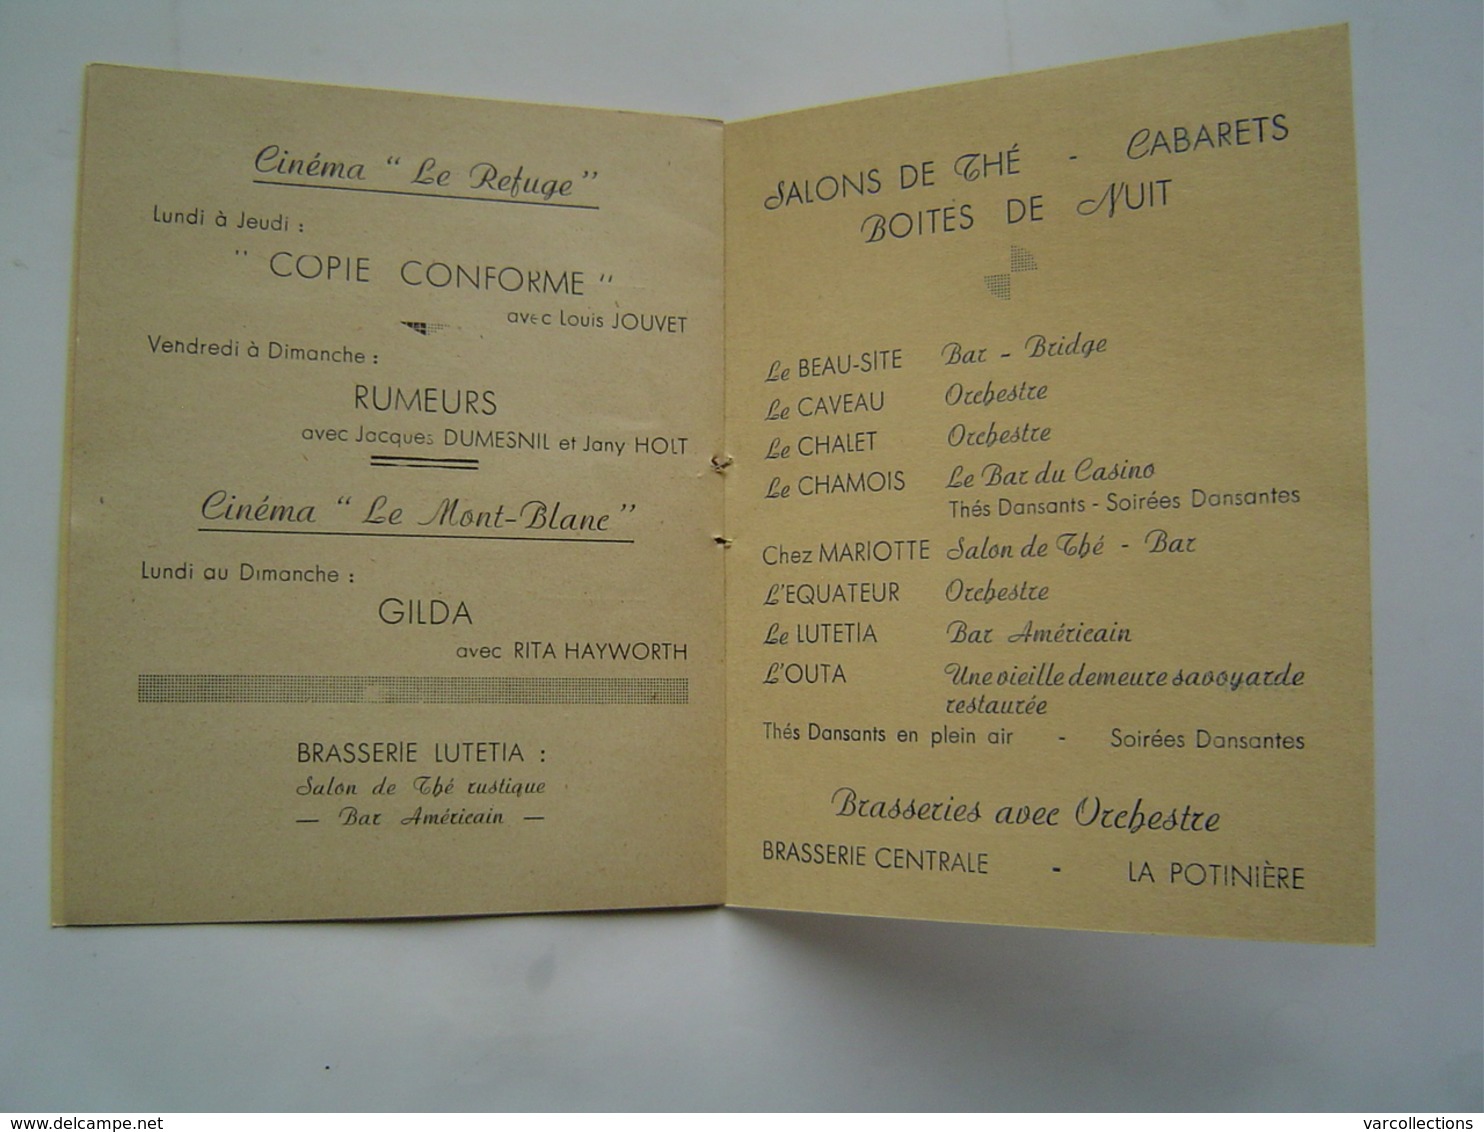 Cinéma " Le Refuge "
Lundi à Jeudi :
" COPIE CONFORME "
avec Louis JOUVET
Vendredi à Dimanche :
RUMEURS
avec Jacques DUMESNIL et Jany HOLT
Cinéma " Le Mont-Blanc "
Lundi au Dimanche :
GILDA
avec RITA HAYWORTH
BRASSERIE LUTETIA :
Salon de Thé rustique
— Bar Américain —
SALONS DE THÉ - CABARETS
BOITES DE NUIT
Le BEAU-SITE Bar - Bridge
Le CAVEAU Orchestre
Le CHALET Orchestre
Le CHAMOIS Le Bar du Casino
Thés Dansants - Soirées Dansantes
Chez MARIOTTE Salon de Thé - Bar
L'EQUATEUR Orchestre
Le LUTETIA Bar Américain
L'OUTA Une vieille demeure savoyarde
restaurée
Thés Dansants en plein air - Soirées Dansantes
Brasseries avec Orchestre
BRASSERIE CENTRALE - LA POTINIÈRE
www.delcampe.net
varcollections